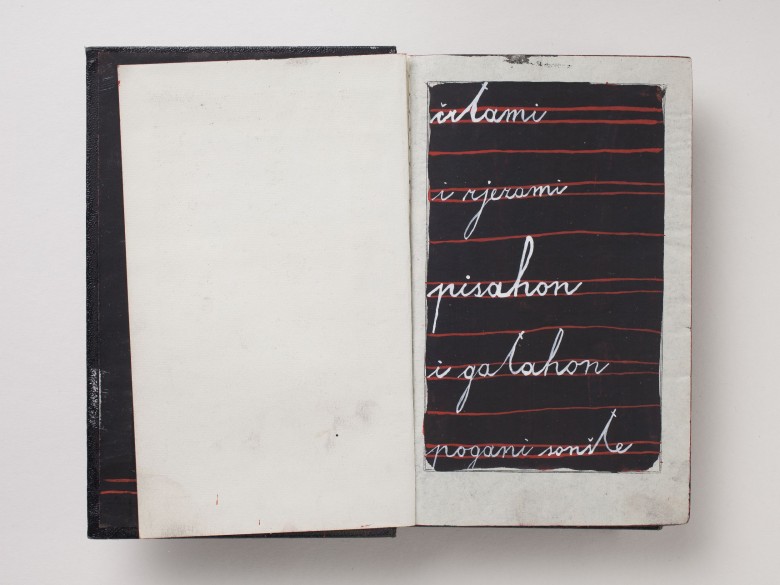 črtami
i rjezami
pisahon
i gatahon
pogani sonšte